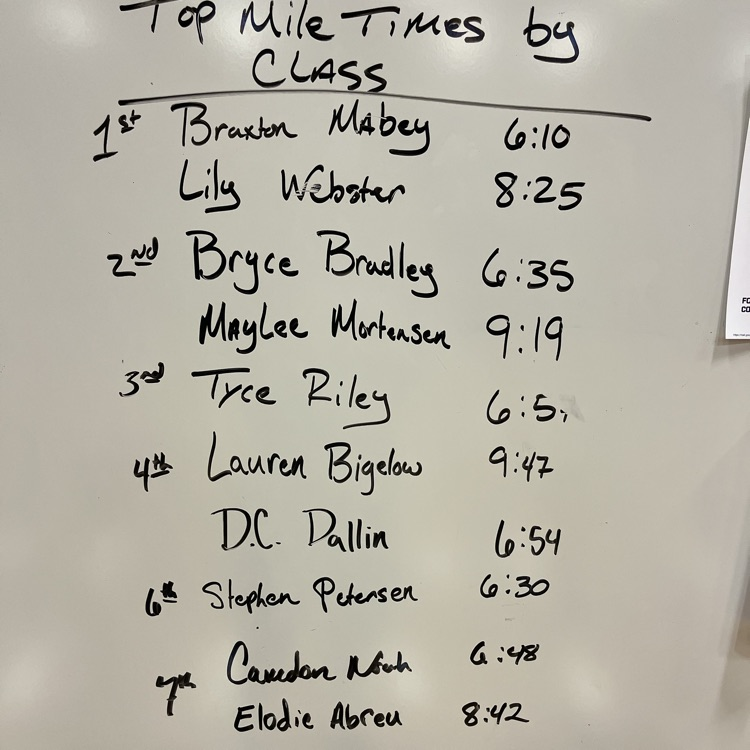 Top Mile Times by
CLASS
1st Braxton Mabey 6:10
Lily Webster 8:25
2nd Bryce Bradley 6:35
MAYLee Mortensen 9:19
3rd Tyce Riley
4th Lauren Bigelow 9:47
D.C. Dallin 6:54
6th Stephen Petersen 6:30
7th 6:48
Elodie Abreu 8:42